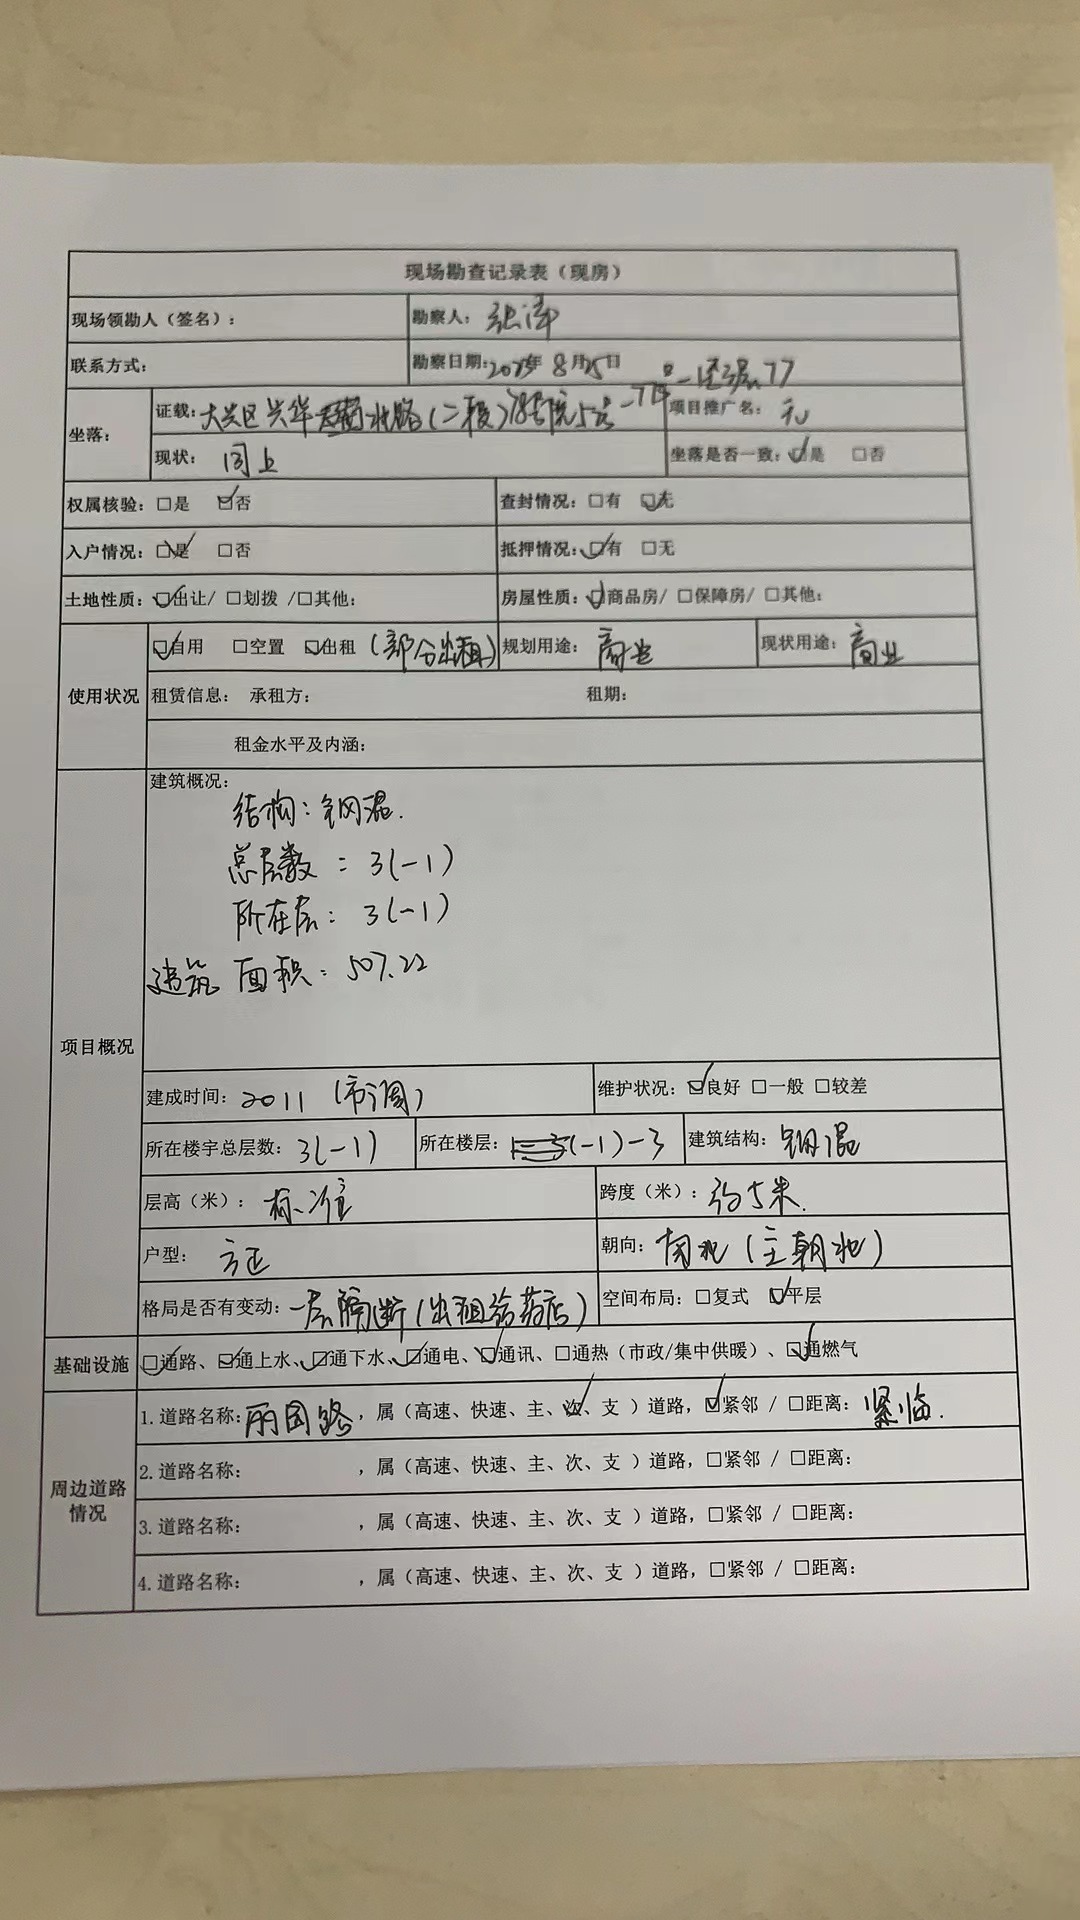 现场勘查记录表（现房）
现场领勘人（签名）： 勘察人：
联系方式： 勘察日期：2025年 8月25日
坐落： 证载：大兴区兴华 北路（二段） 项目推广名：无
现状：同上 坐落是否一致：☑是 □否
权属核验：□是 ☑否 查封情况：□有 ☑无
入户情况：☑是 □否 抵押情况：☑有 □无
土地性质：☑出让/ □划拨 /□其他： 房屋性质：☑商品房/ □保障房/ □其他：
使用状况 ☑自用 □空置 ☑出租（部分出租） 规划用途：商业 现状用途：商业
租赁信息： 承租方： 租期：
租金水平及内涵：
项目概况 建筑概况：
结构：钢混.
总层数：3(-1)
所在层：3(-1)
建筑面积：507.22
建成时间：2011（市调） 维护状况：☑良好 □一般 □较差
所在楼宇总层数：3(-1) 所在楼层：(-1)-3 建筑结构：钢混
层高（米）：标准 跨度（米）：约5米.
户型：方正 朝向：南北（主朝北）
格局是否有变动：一层隔断（出租给药店） 空间布局：□复式 ☑平层
基础设施 ☑通路、☑通上水、☑通下水、☑通电、☑通讯、□通热（市政/集中供暖）、☑通燃气
周边道路情况 1.道路名称：丽园路，属（高速、快速、主、次、支 ）道路，☑紧邻 / □距离：紧临.
2.道路名称： ，属（高速、快速、主、次、支 ）道路，□紧邻 / □距离：
3.道路名称： ，属（高速、快速、主、次、支 ）道路，□紧邻 / □距离：
4.道路名称： ，属（高速、快速、主、次、支 ）道路，□紧邻 / □距离：